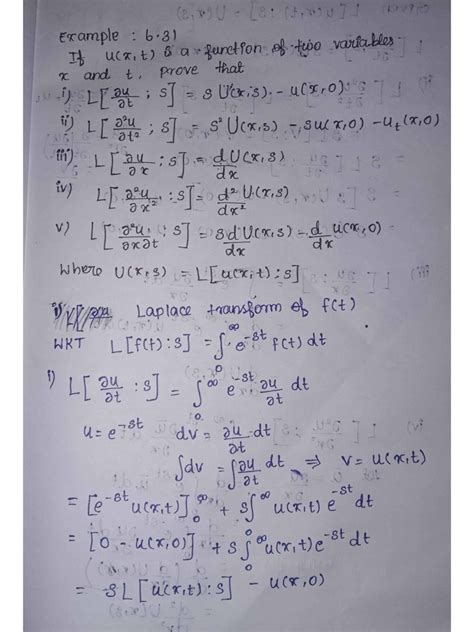 Example : 6.31
If u(x,t) is a function of two variables
x and t, prove that
i) L[∂u/∂t ; s] = s U(x,s) - u(x,0)
ii) L[∂²u/∂t² ; s] = s² U(x,s) - su(x,0) - u_t(x,0)
iii) L[∂u/∂x ; s] = d U(x,s)/dx
iv) L[∂²u/∂x² : s] = d²/dx² U(x,s)
v) L[∂²u/∂x∂t : s] = s d/dx U(x,s) - d/dx u(x,0)
where U(x,s) = L[u(x,t) : s]
i) Laplace transform of f(t)
WKT L[f(t) : s] = ∫₀^∞ e^-st f(t) dt
i) L[∂u/∂t : s] = ∫₀^∞ e^-st ∂u/∂t dt
u = e^-st dv = ∂u/∂t · dt
∫dv = ∫∂u/∂t dt ⇒ v = u(x,t)
= [e^-st u(x,t)]₀^∞ + s∫₀^∞ u(x,t) e^-st dt
= [0 - u(x,0)] + s∫₀^∞ u(x,t) e^-st dt
= sL[u(x,t) : s] - u(x,0)